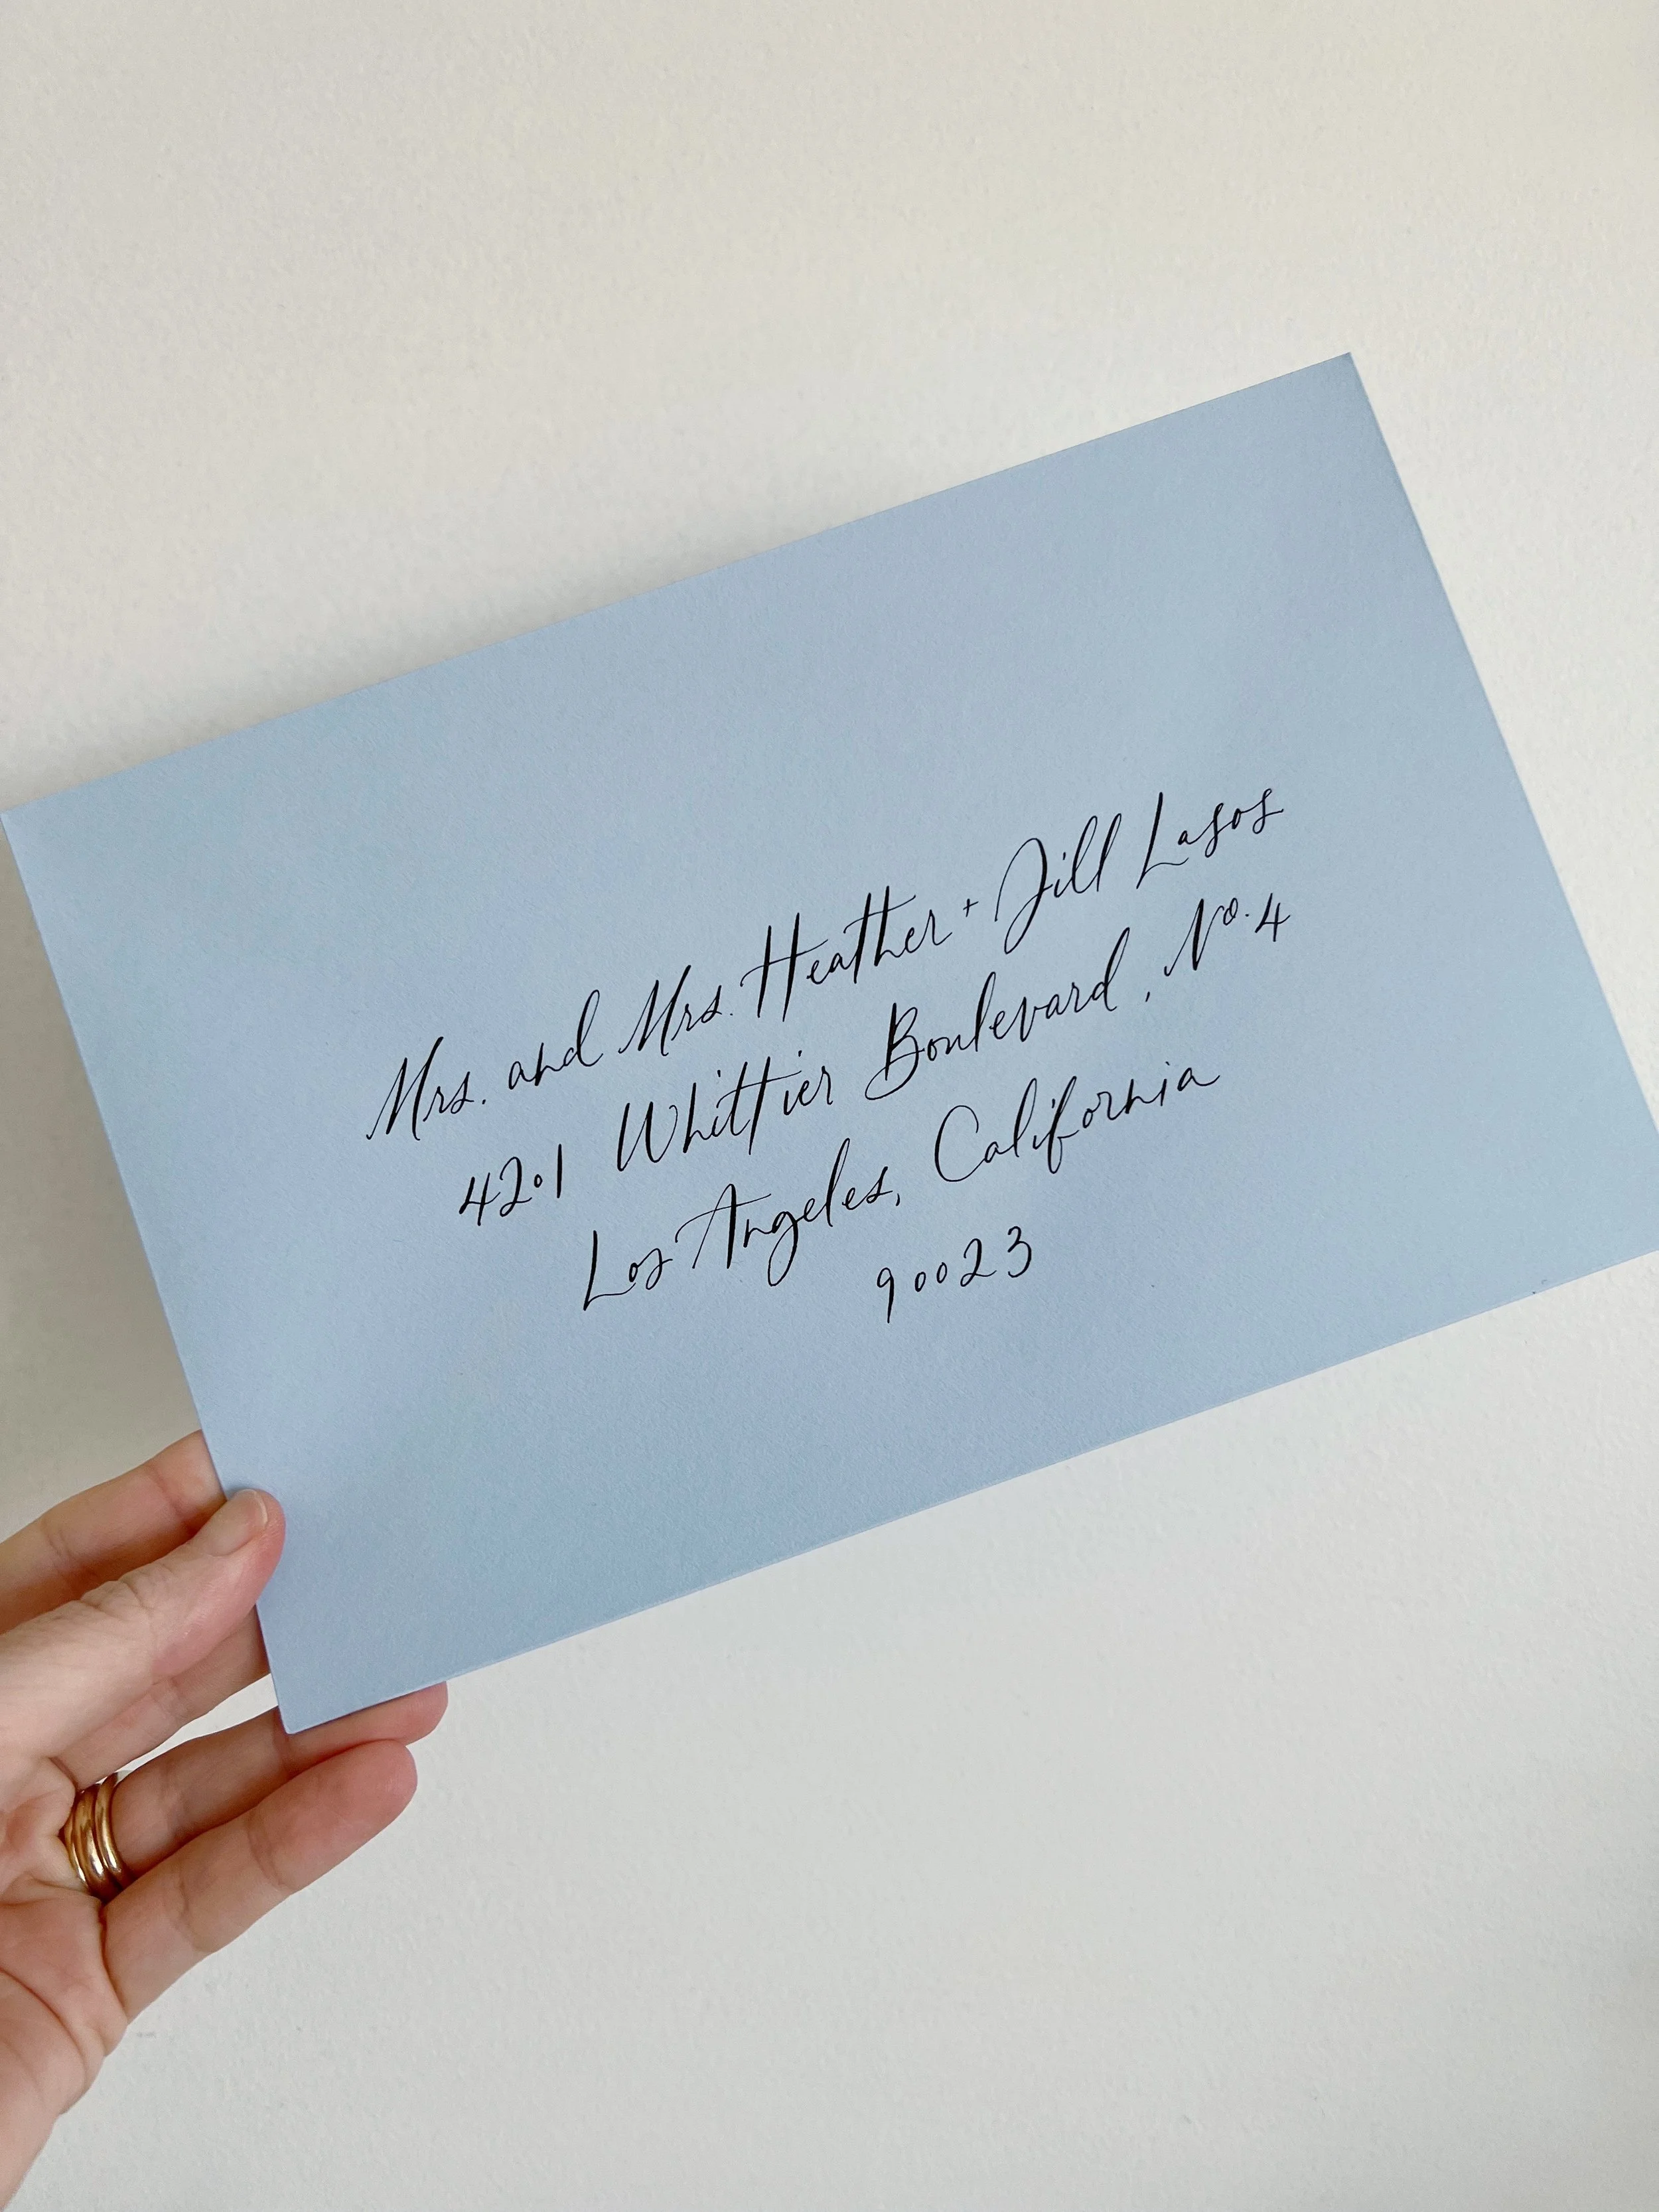 Mrs. and Mrs. Heather + Jill Lasos
4201 Whittier Boulevard, No. 4
Los Angeles, California
90023